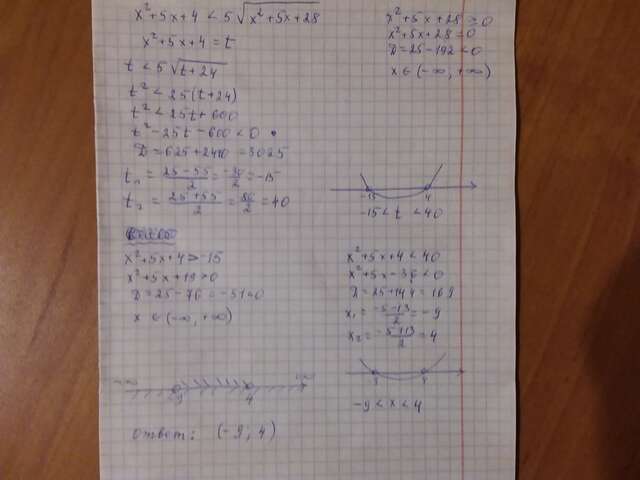 x²+5x+4 < 5√x²+5x+28
x²+5x+4 = t
t < 5√t+24
t² < 25(t+24)
t² < 25t+600
t²-25t-600 < 0
D = 625+2400 = 3025
t₁ = 25-55/2 = -30/2 = -15
t₂ = 25+55/2 = 80/2 = 40
x²+5x+28 ≥ 0
x²+5x+28 = 0
D = 25-192 < 0
x ∈ (-∞, +∞)
-15 4
-15 < t < 40
x²+5x+4 > -15
x²+5x+19 > 0
D = 25-76 = -51<0
x ∈ (-∞, +∞)
x²+5x+4 < 40
x²+5x-36 < 0
D = 25+144 = 169
x₁ = -5-13/2 = -9
x₂ = -5+13/2 = 4
-9 < x < 4
-∞ -9 4 +∞
Ответ: (-9; 4)